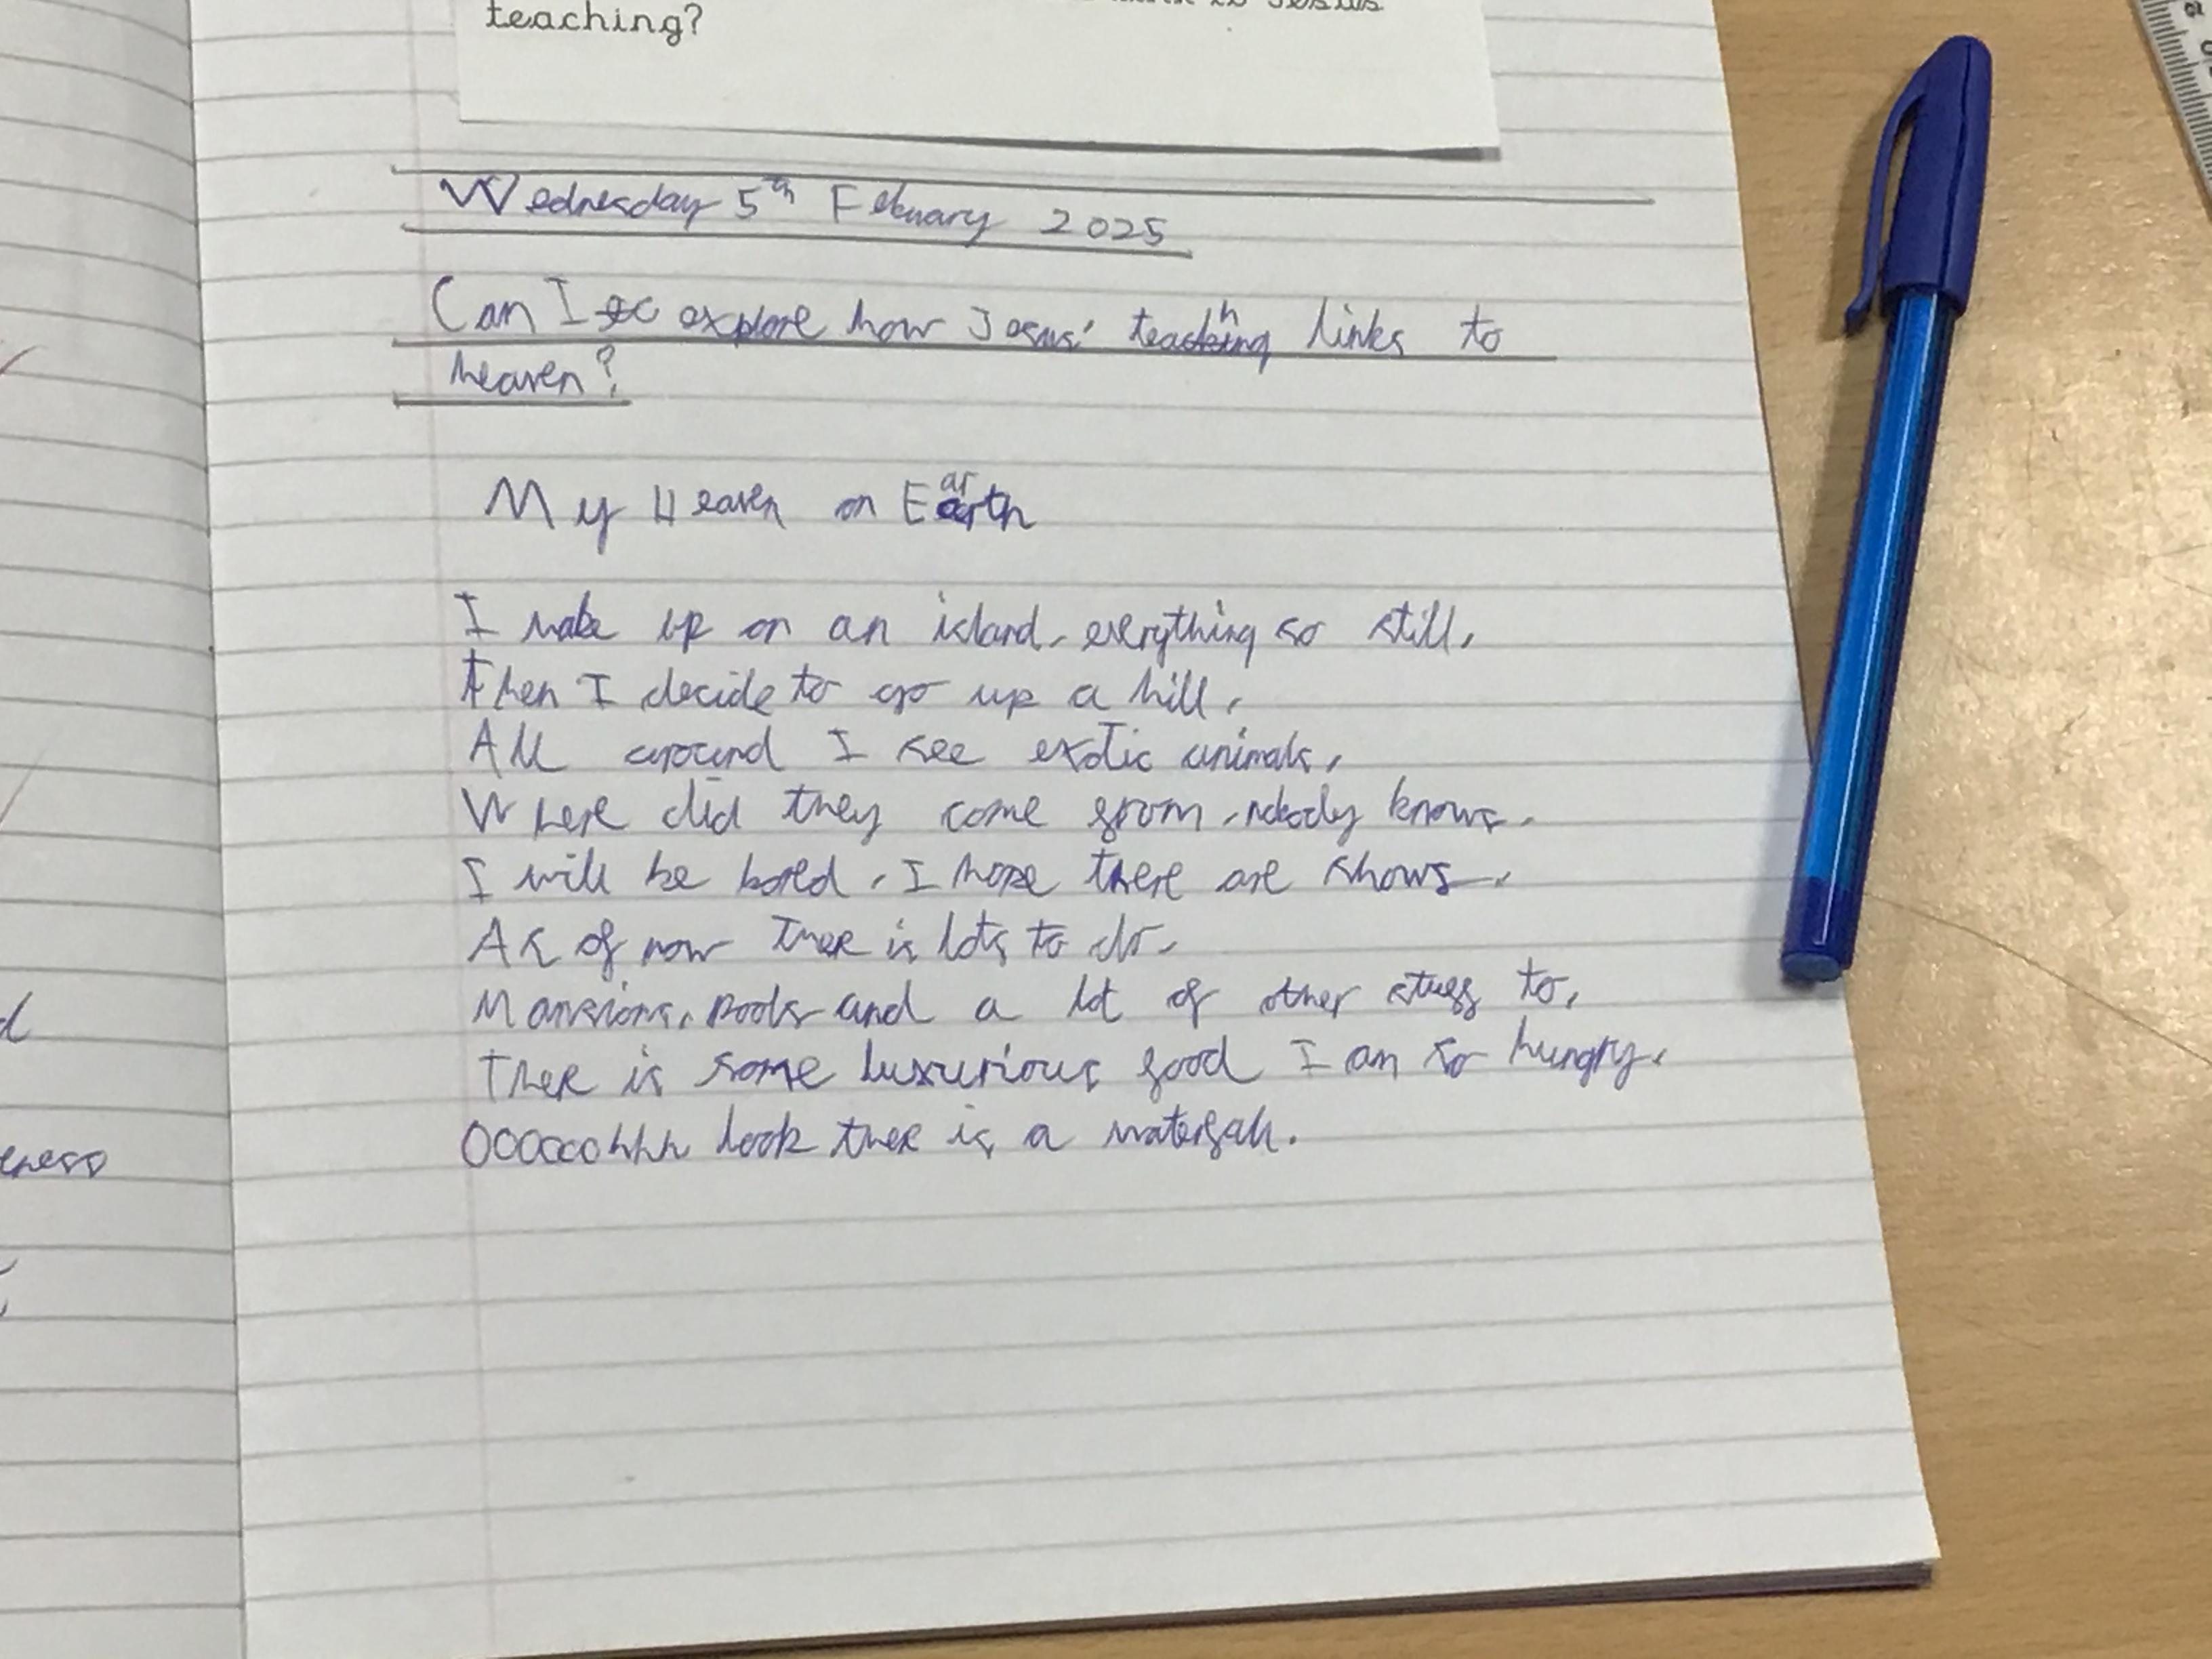 Jesus
teaching?
Wednesday 5th Febuary 2025
Can I explore how Jesus' teaching links to
heaven?
My Heaven on Earth
I wake up on an island, everything so still,
Then I decide to go up a hill,
All around I see exotic animals,
Where did they come from, nobody knows.
I will be bored, I hope there are shows.
As of now there is lots to do.
Mansions, pools and a lot of other stuff to,
There is some luxurious food I am so hungry.
Oooooohhh look there is a waterfall.
eness